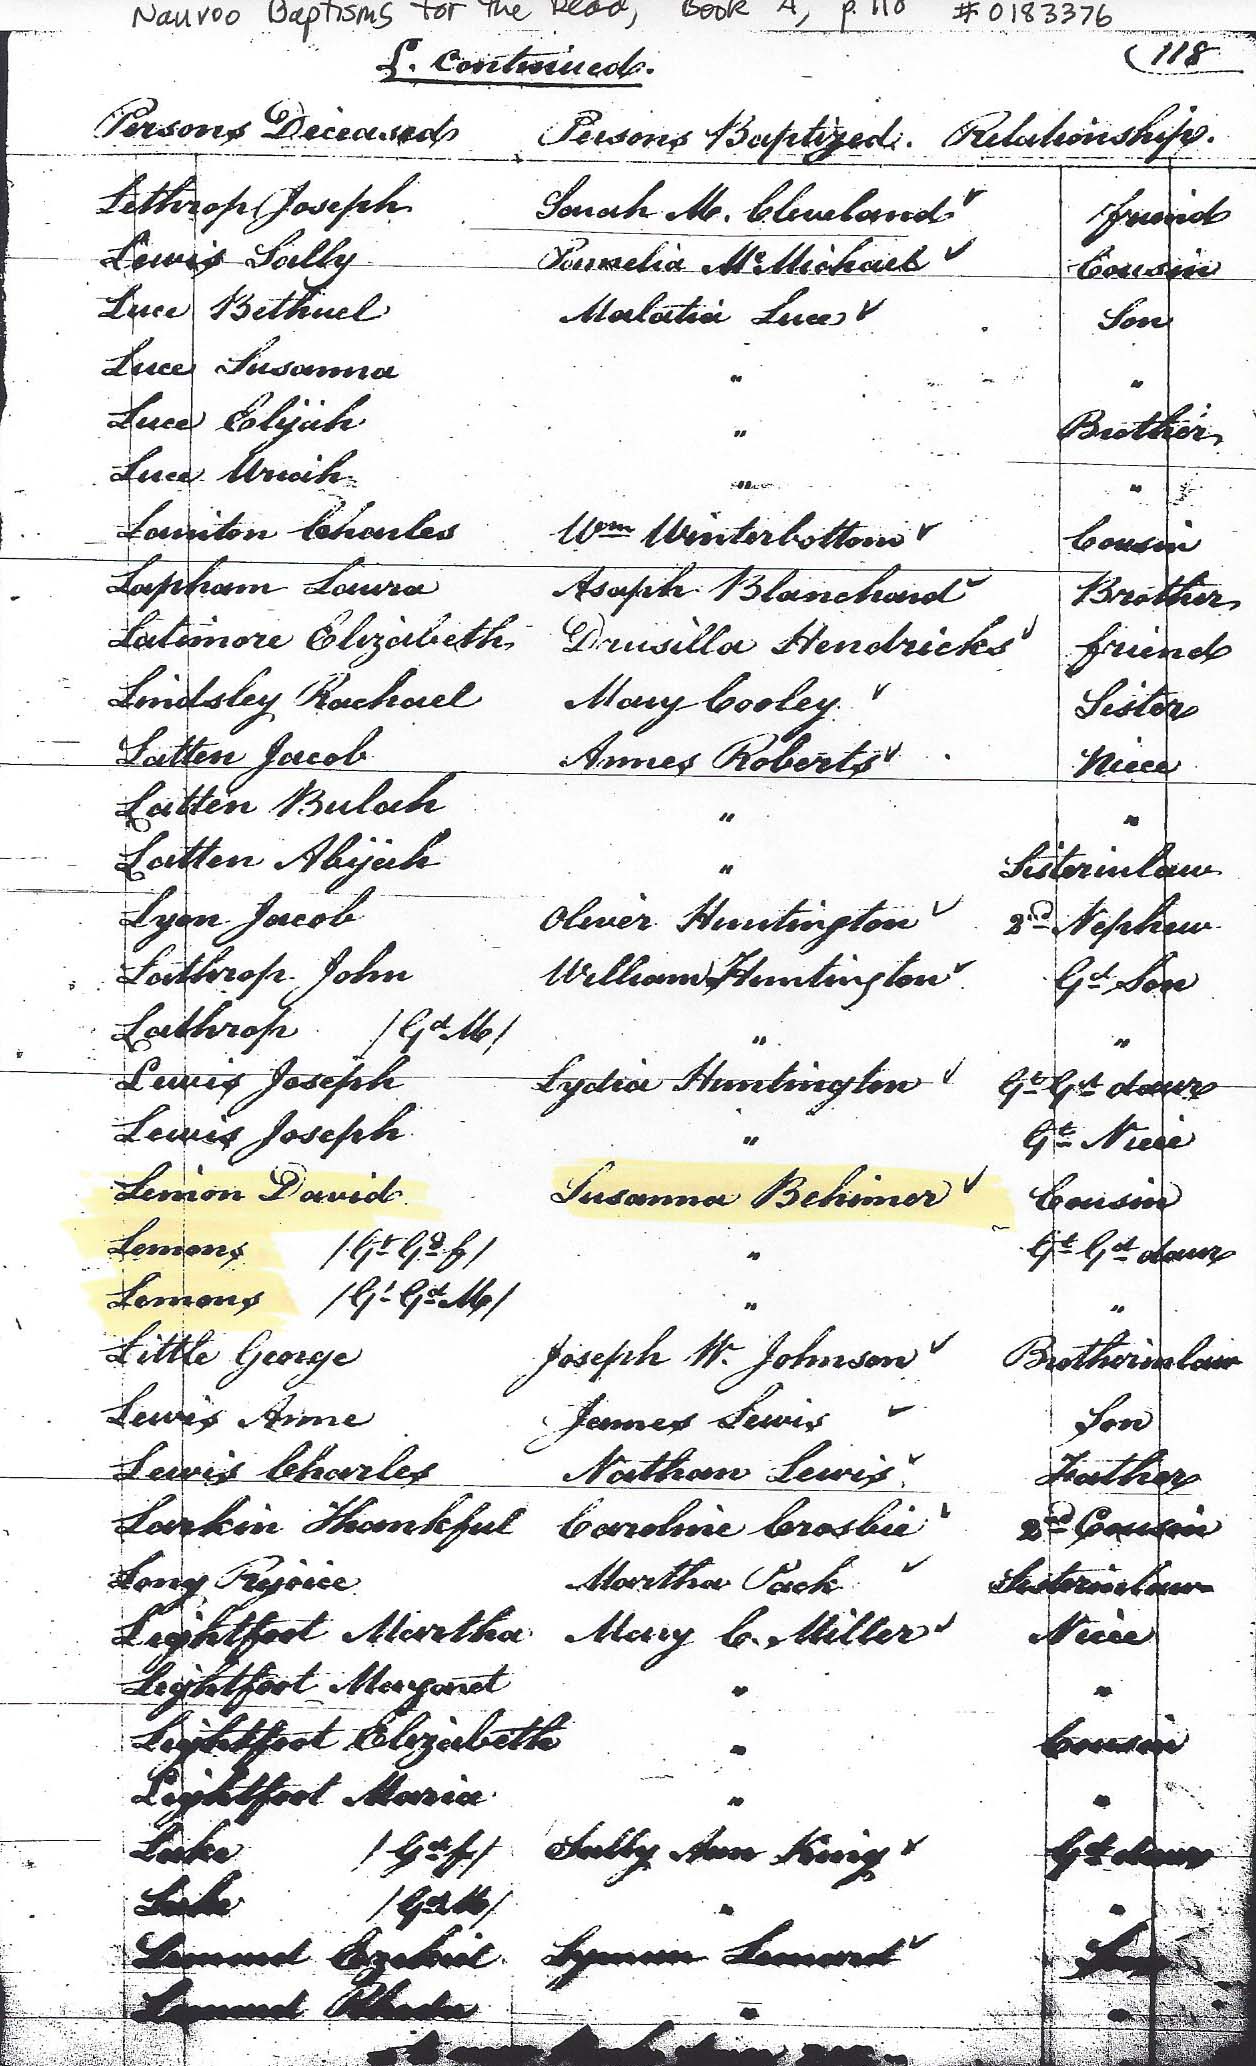 Nauvoo Baptisms for the Dead, Book A, p. 118 #0183376
L. Continued. 118
Persons Deceased Persons Baptized. Relationship.
Lethrop Joseph Sarah M. Cleveland friend
Lewis Sally Pamelia McMichael Cousin
Luce Bethuel Malatia Luce Son
Luce Susanna " "
Luce Elijah " Brother
Luce Uriah " "
Laniton Charles Wm Winterbottom Cousin
Lapham Laura Asaph Blanchard Brother
Latimore Elizabeth Drusilla Hendricks friend
Lindsley Rachael Mary Cooley Sister
Latten Jacob Annes Roberts Niece
Latten Bulah " "
Latten Abijah " Sisterinlaw
Lyon Jacob Oliver Huntington 2nd Nephew
Lathrop John William Huntington Gd Son
Lathrop /Gd M/ " "
Lewis Joseph Lydia Huntington Gt Gd daur
Lewis Joseph " Gt Niece
Lemon David Susanna Behimer Cousin
Lemons /Gt Gd f/ " Gt Gd daur
Lemons /Gt Gd M/ " "
Little George Joseph W. Johnson Brotherinlaw
Lewis Anne James Lewis Son
Lewis Charles Nathan Lewis Father
Larkin Thankful Caroline Crosbie 2nd Cousin
Long Rejoice Martha Pack Sisterinlaw
Lightfoot Martha Mary C. Miller Niece
Lightfoot Margaret " "
Lightfoot Elizabeth " Cousin
Lightfoot Maria " "
Luke /Gd f/ Sally Ann King Gd daur
Luke /Gd M/ " "
Lenard Ezekiel Lyman Lenard Son
Lenard Rhoda " "